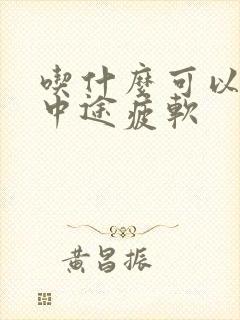 喫什麼可以
中途疲軟
黃昌振